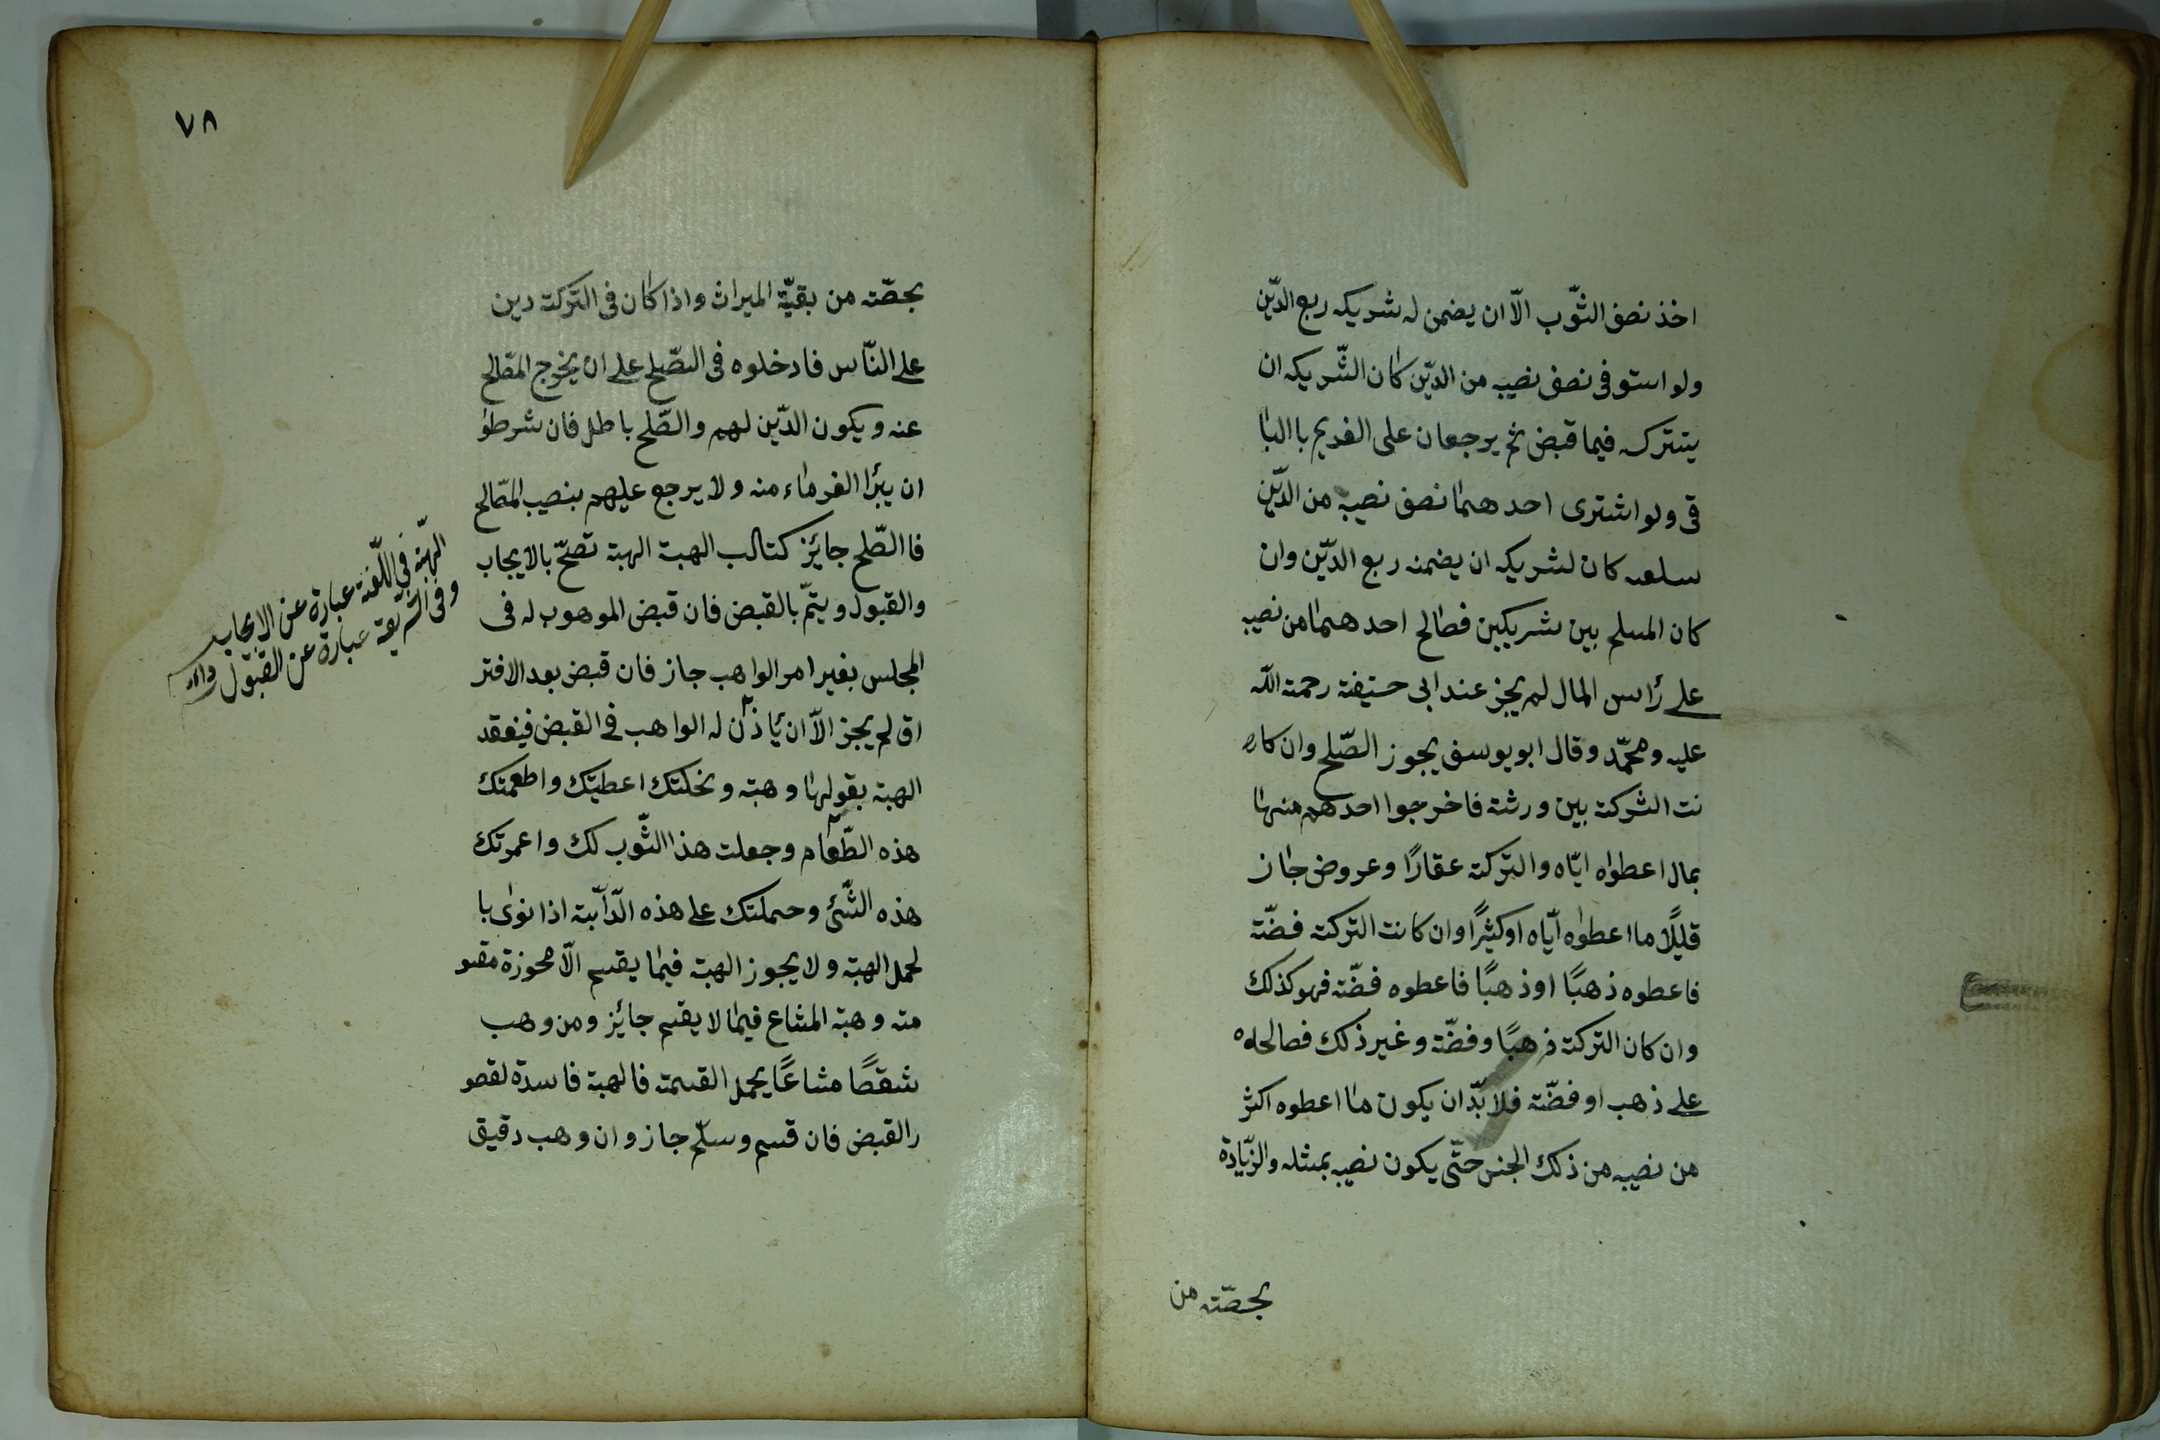 اخذ نصف الثّوب الّا ان يضمن له شريكه ربع الدّين
ولو استوفى نصف نصيبه من الدّين كان الشّريكه ان
يشترك فيما قبض ثم يرجعان على الغريم باالبا
قى ولو اشترى احدهما نصف نصيبه من الدّين
سلعه كان لشريكه ان يضمنه ربع الدّين وان
كان المسلم بين شريكين فصالح احدهما من نصيبه
على رأس المال لم يجز عند ابى حنيفة رحمة اللّه
عليه ومحمّد وقال ابو يوسف يجوز الصّلح وان كا
نت الشركة بين ورثة فاخرجوا احدهم منها
بمال اعطواه ايّاه والتركة عقارًا وعروض جاز
قليلًا ما اعطواه ايّاه او كثيرًا وان كانت التركة فضّة
فاعطوه ذهبًا او ذهبًا فاعطوه فضّة فهو كذلك
وان كان التركة ذهبًا وفضّة وغير ذلك فصالحوه
على ذهب او فضّة فلا بدّ ان يكون ما اعطوه اكثر
من نصيبه من ذلك الجنس حتّى يكون نصيبه بمثله والزّيادة
بحصّته من
٧٨
بحصّته من بقيّة الميراث واذا كان فى التّركة دين
على النّاس فادخلوه فى الصّلح على ان يخرج المصّالح
عنه ويكون الدّين لهم والصّلح باطل فان شرطوا
ان يبرأ الغرماء منه ولا يرجع عليهم بنصيب المصّالح
فاالصّلح جائز كتاب الهبة الهبة تصّحّ بالايجاب
والقبول ويتمّ بالقبض فان قبض الموهوب له فى
المجلس بغير امر الواهب جاز فان قبض بعد الافتر
اق لم يجز الّا ان يأذن له الواهب فى القبض فينعقد
الهبة بقولها وهبة ونحلتك اعطيتك واطعمتك
هذه الطّعام وجعلت هذا الثّوب لك واعمرتك
هذه الشّئ وحملتك على هذه الدّآبة اذا نوى با
لحمل الهبة ولا يجوز الهبة فيما يقسم الّا محوزة مقسو
مته وهبة المشاع فيما لا يقسم جائز ومن وهب
شقصًا مشاعًا يحمل القسمة فالهبة فاسدة لقصو
رالقبض فان قسم وسلّم جاز وان وهب دقيق
الهبّة فى اللّغة عبارة عن الايجاب
وفى الشريعة عبارة عن القبول